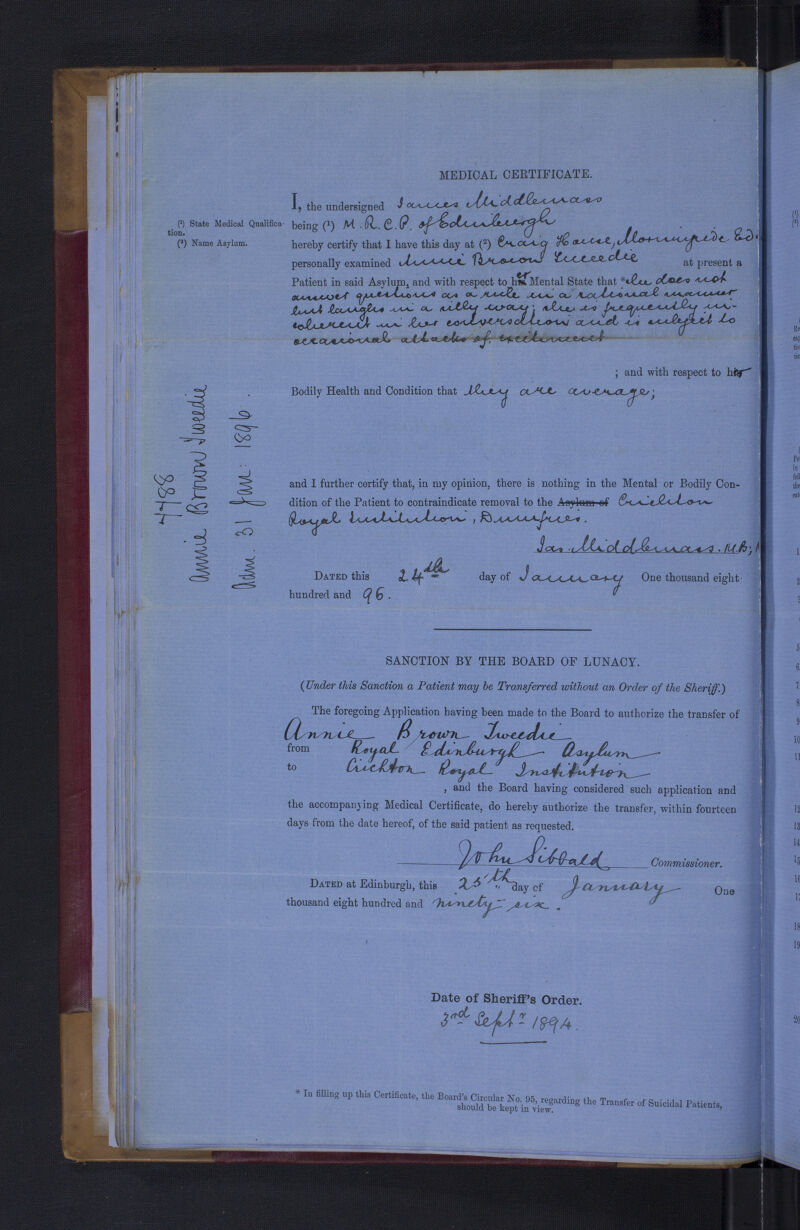 MEDICAL CERTIFICATE.
I, the undersigned James Middlemass
(¹) State Medical Qualifica-
tion.
being (¹) M.R.C.P. of Edinburgh
(²) Name Asylum.
hereby certify that I have this day at (²) Craig House, Morningside Ed
personally examined Annie Brown Tweedie at present a
Patient in said Asylum, and with respect to her Mental State that *she does not
answer questions as a rule in a rational manner
but laughs in a silly way; she is frequently in-
coherent in her conversation and is subject to
occasional attacks of excitement
; and with respect to her
Bodily Health and Condition that they are average;
and I further certify that, in my opinion, there is nothing in the Mental or Bodily Con-
dition of the Patient to contraindicate removal to the Asylum of Crichton
Royal Institution, Dumfries.
Jas. Middlemass. M.B;
DATED this 24th day of January One thousand eight
hundred and 96.
4488
Annie Brown Tweedie
Adm. 31 Jan: 1896.
SANCTION BY THE BOARD OF LUNACY.
(Under this Sanction a Patient may be Transferred without an Order of the Sheriff.)
The foregoing Application having been made to the Board to authorize the transfer of
Annie Brown Tweedie
from Royal Edinburgh Asylum
to Crichton Royal Institution
, and the Board having considered such application and
the accompanying Medical Certificate, do hereby authorize the transfer, within fourteen
days from the date hereof, of the said patient as requested.
John Sibbald Commissioner.
DATED at Edinburgh, this 25th day of January One
thousand eight hundred and ninety-six.
Date of Sheriff's Order.
3rd Septr 1894.
* In filling up this Certificate, the Board's Circular No. 95, regarding the Transfer of Suicidal Patients,
should be kept in view.